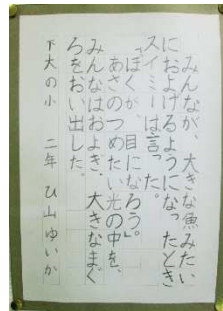 みんなが、大きな魚みたい
におよげるようになったとき
スイミーは言った。
「ぼくが、目になろう。」
あさのつめたい光の中を、
みんなはおよぎ、大きなまぐ
ろをおい出した。
下大の小　二年　ひ山ゆいか